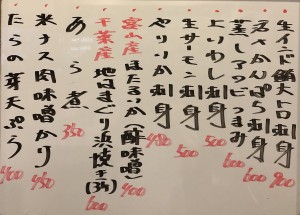 生インド鮪大トロ刺身 900
活〆かんぱち刺身 600
蒸しアワビつまみ 600
上いわし刺身 500
生サーモン刺身 500
やりいか刺身 450
富山産ほたるいか(酢味噌) 400
千葉産地はまぐり浜焼き(3ヶ) 600
あら煮 350
米ナス肉味噌かけ 450
たらの芽天ぷら 400